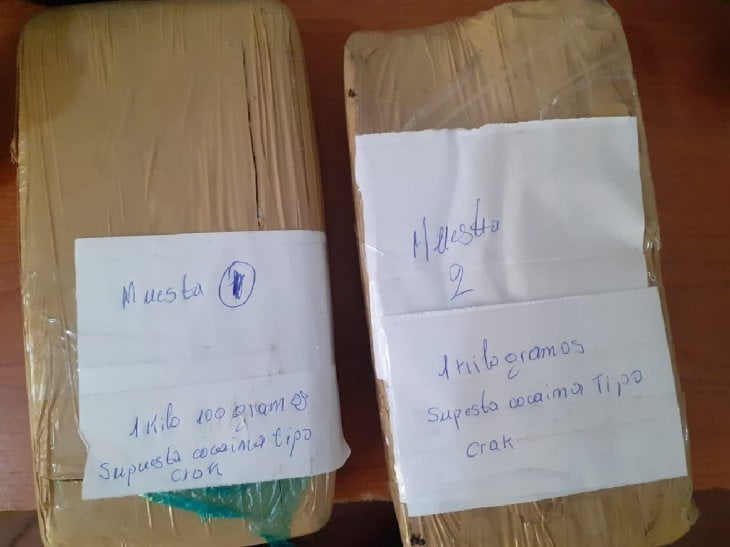 Muesta 1
1 Kilo 100 gramos
Supuesta cocaina tipo
crak
Muestra
2
1 Kilogramos
Supesta cocaina Tipo
crak